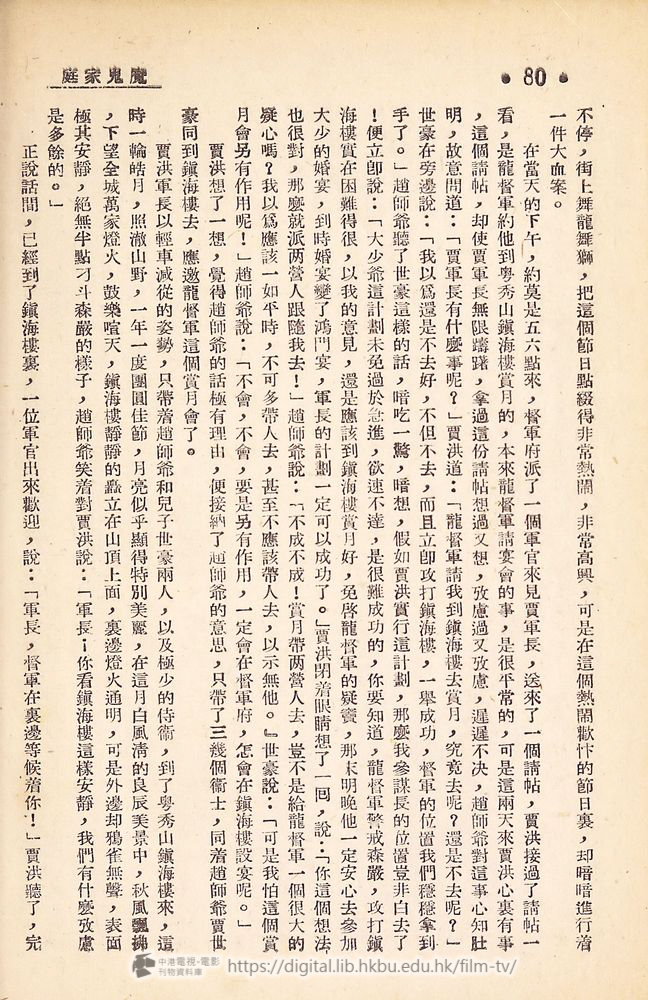 魔鬼家庭
• 80 •
不停，街上舞龍舞獅，把這個節日點綴得非常熱鬧，非常高興，可是在這個熱鬧歡忭的節日裏，却暗暗進行着
一件大血案。
在當天的下午，約莫是五六點來，督軍府派了一個軍官來見賈軍長，送來了一個請帖，賈洪接過了請帖一
看，是龍督軍約他到粵秀山鎭海樓賞月的，本來龍督軍請宴會的事，是很平常的，可是這兩天來賈洪心裏有事
，這個請帖，却使賈軍長無限躊躇，拿過這份請帖想過又想，攷慮過又攷慮，遲遲不决，趙師爺對這事心知肚
明，故意問道：「賈軍長有什麼事呢？」賈洪道：「龍督軍請我到鎭海樓去賞月，究竟去呢？還是不去呢？」
世豪在旁邊說：「我以爲還是不去好，不但不去，而且立卽攻打鎭海樓，一舉成功，督軍的位置我們穩穩拿到
手了。」趙師爺聽了世豪這樣的話，暗吃一驚，暗想，假如賈洪實行這計劃，那麼我參謀長的位置豈非白去了
！便立卽說：「大少爺這計劃未免過於急進，欲速不達，是很難成功的，你要知道，龍督軍警戒森嚴，攻打鎭
海樓實在困難得很，以我的意見，還是應該到鎭海樓賞月好，免啓龍督軍的疑竇，那末明晚他一定安心去參加
大少的婚宴，到時婚宴變了鴻門宴，軍長的計劃一定可以成功了。」賈洪閉着眼睛想了一回，說：「你這個想法
也很對，那麼就派两營人跟隨我去！」趙師爺說：「不成不成！賞月帶两營人去，豈不是給龍督軍一個很大的
疑心嗎？我以爲應該一如平時，不可多帶人去，甚至不應該帶人去，以示無他。』世豪說：「可是我怕這個賞
月會另有作用呢！」趙師爺說：「不會，不會，要是另有作用，一定會在督軍府，怎會在鎭海樓設宴呢。」
賈洪想了一想，覺得趙師爺的話極有理由，便接納了趙師爺的意思，只帶了三幾個衞士，同着趙師爺賈世
豪同到鎭海樓去，應邀龍督軍這個賞月會了。
賈洪軍長以輕車減從的姿勢，只帶着趙師爺和兒子世豪兩人，以及極少的侍衞，到了粵秀山鎭海樓來，這
時一輪皓月，照澈山野，一年一度團圓佳節，月亮似乎顯得特別美麗，在這月白風淸的良辰美景中，秋風飄拂
，下望全城萬家燈火，鼓樂喧天，鎭海樓靜靜的矗立在山頂上面，裏邊燈火通明，可是外邊却鴉雀無聲，表面
極其安靜，絕無半點刁斗森嚴的樣子，趙師爺笑着對賈洪說：「軍長；你看鎭海樓這樣安靜，我們有什麼攷慮
是多餘的。」
正說話間，已經到了鎭海樓裏，一位軍官出來歡迎，說：「軍長，督軍在裏邊等候着你！」賈洪聽了，完
中港電視-電影
刊物資料庫
https://digital.lib.hkbu.edu.hk/film-tv/